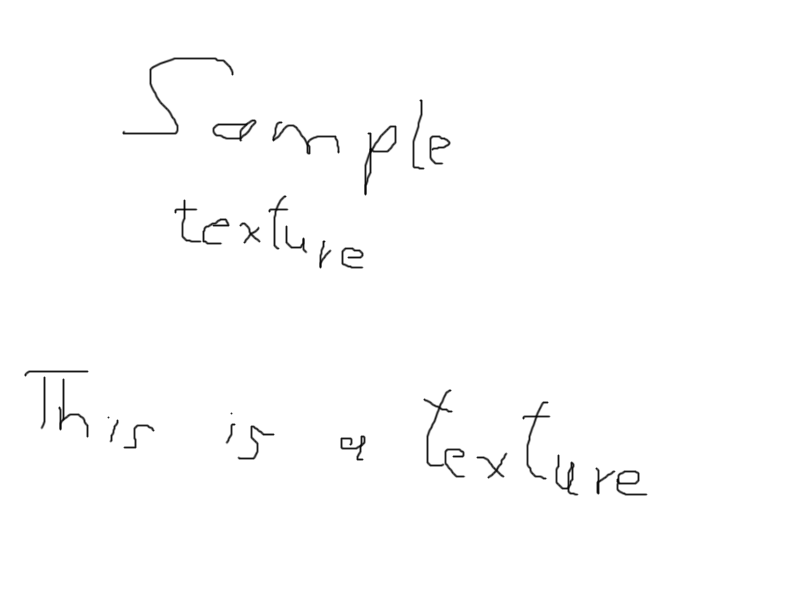 Sample
texture
This is a texture